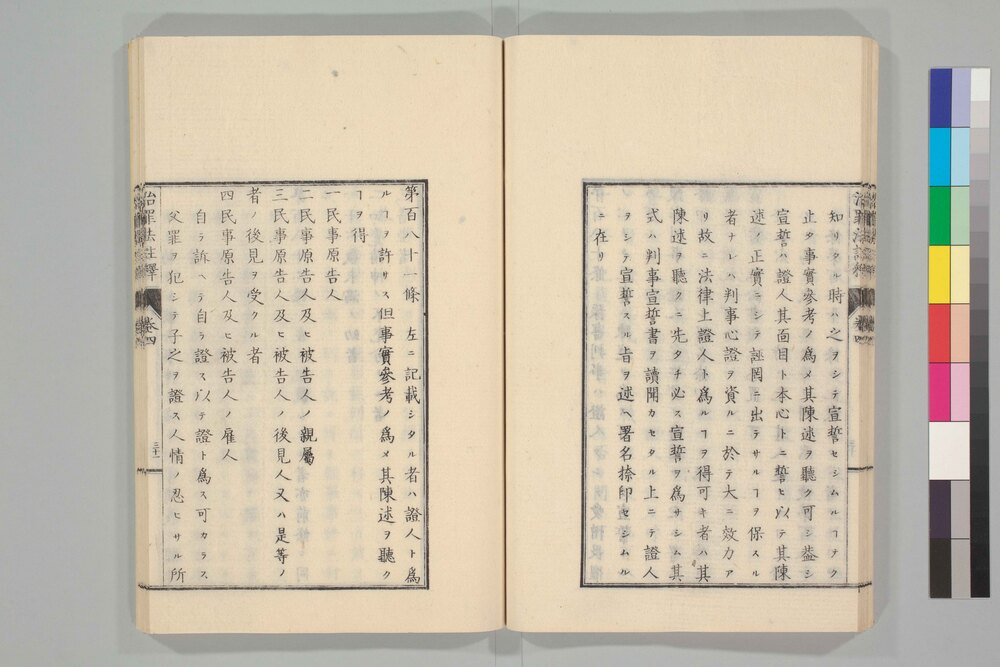 知リタル時ハ之ヲシテ宣誓セシムルヿナク
止タ事實參考ノ爲メ其陳述ヲ聽ク可シ葢シ
宣誓ハ證人其面目ト本心トニ誓ヒ以テ其陳
述ノ正實ニシテ誣罔ニ出テサルヿヲ保スル
者ナレハ判事心證ヲ資ルニ於テ大ニ效力ア
リ故ニ法律上證人ト爲ルヿヲ得可キ者ハ其
陳述ヲ聽クニ先タチ必ス宣誓ヲ爲サシム其
式ハ判事宣誓書ヲ讀聞カセタル上ニテ證人
ヲシテ宣誓スル旨ヲ述ヘ署名捺印セシムル
ニ在リ
第百八十一條 左ニ記載シタル者ハ證人ト爲
ルヿヲ許サス但事實參考ノ爲メ其陳述ヲ聽ク
ヿヲ得
一民事原告人
二民事原告人及ヒ被告人ノ親屬
三民事原告人及ヒ被告人ノ後見人又ハ是等ノ
者ノ後見ヲ受クル者
四民事原告人及ヒ被告人ノ雇人
自ラ訴ヘテ自ラ證ス以テ證ト爲ス可カラス
父罪ヲ犯シテ子之ヲ證ス人情ノ忍ヒサル所
治罪法註釋 卷四